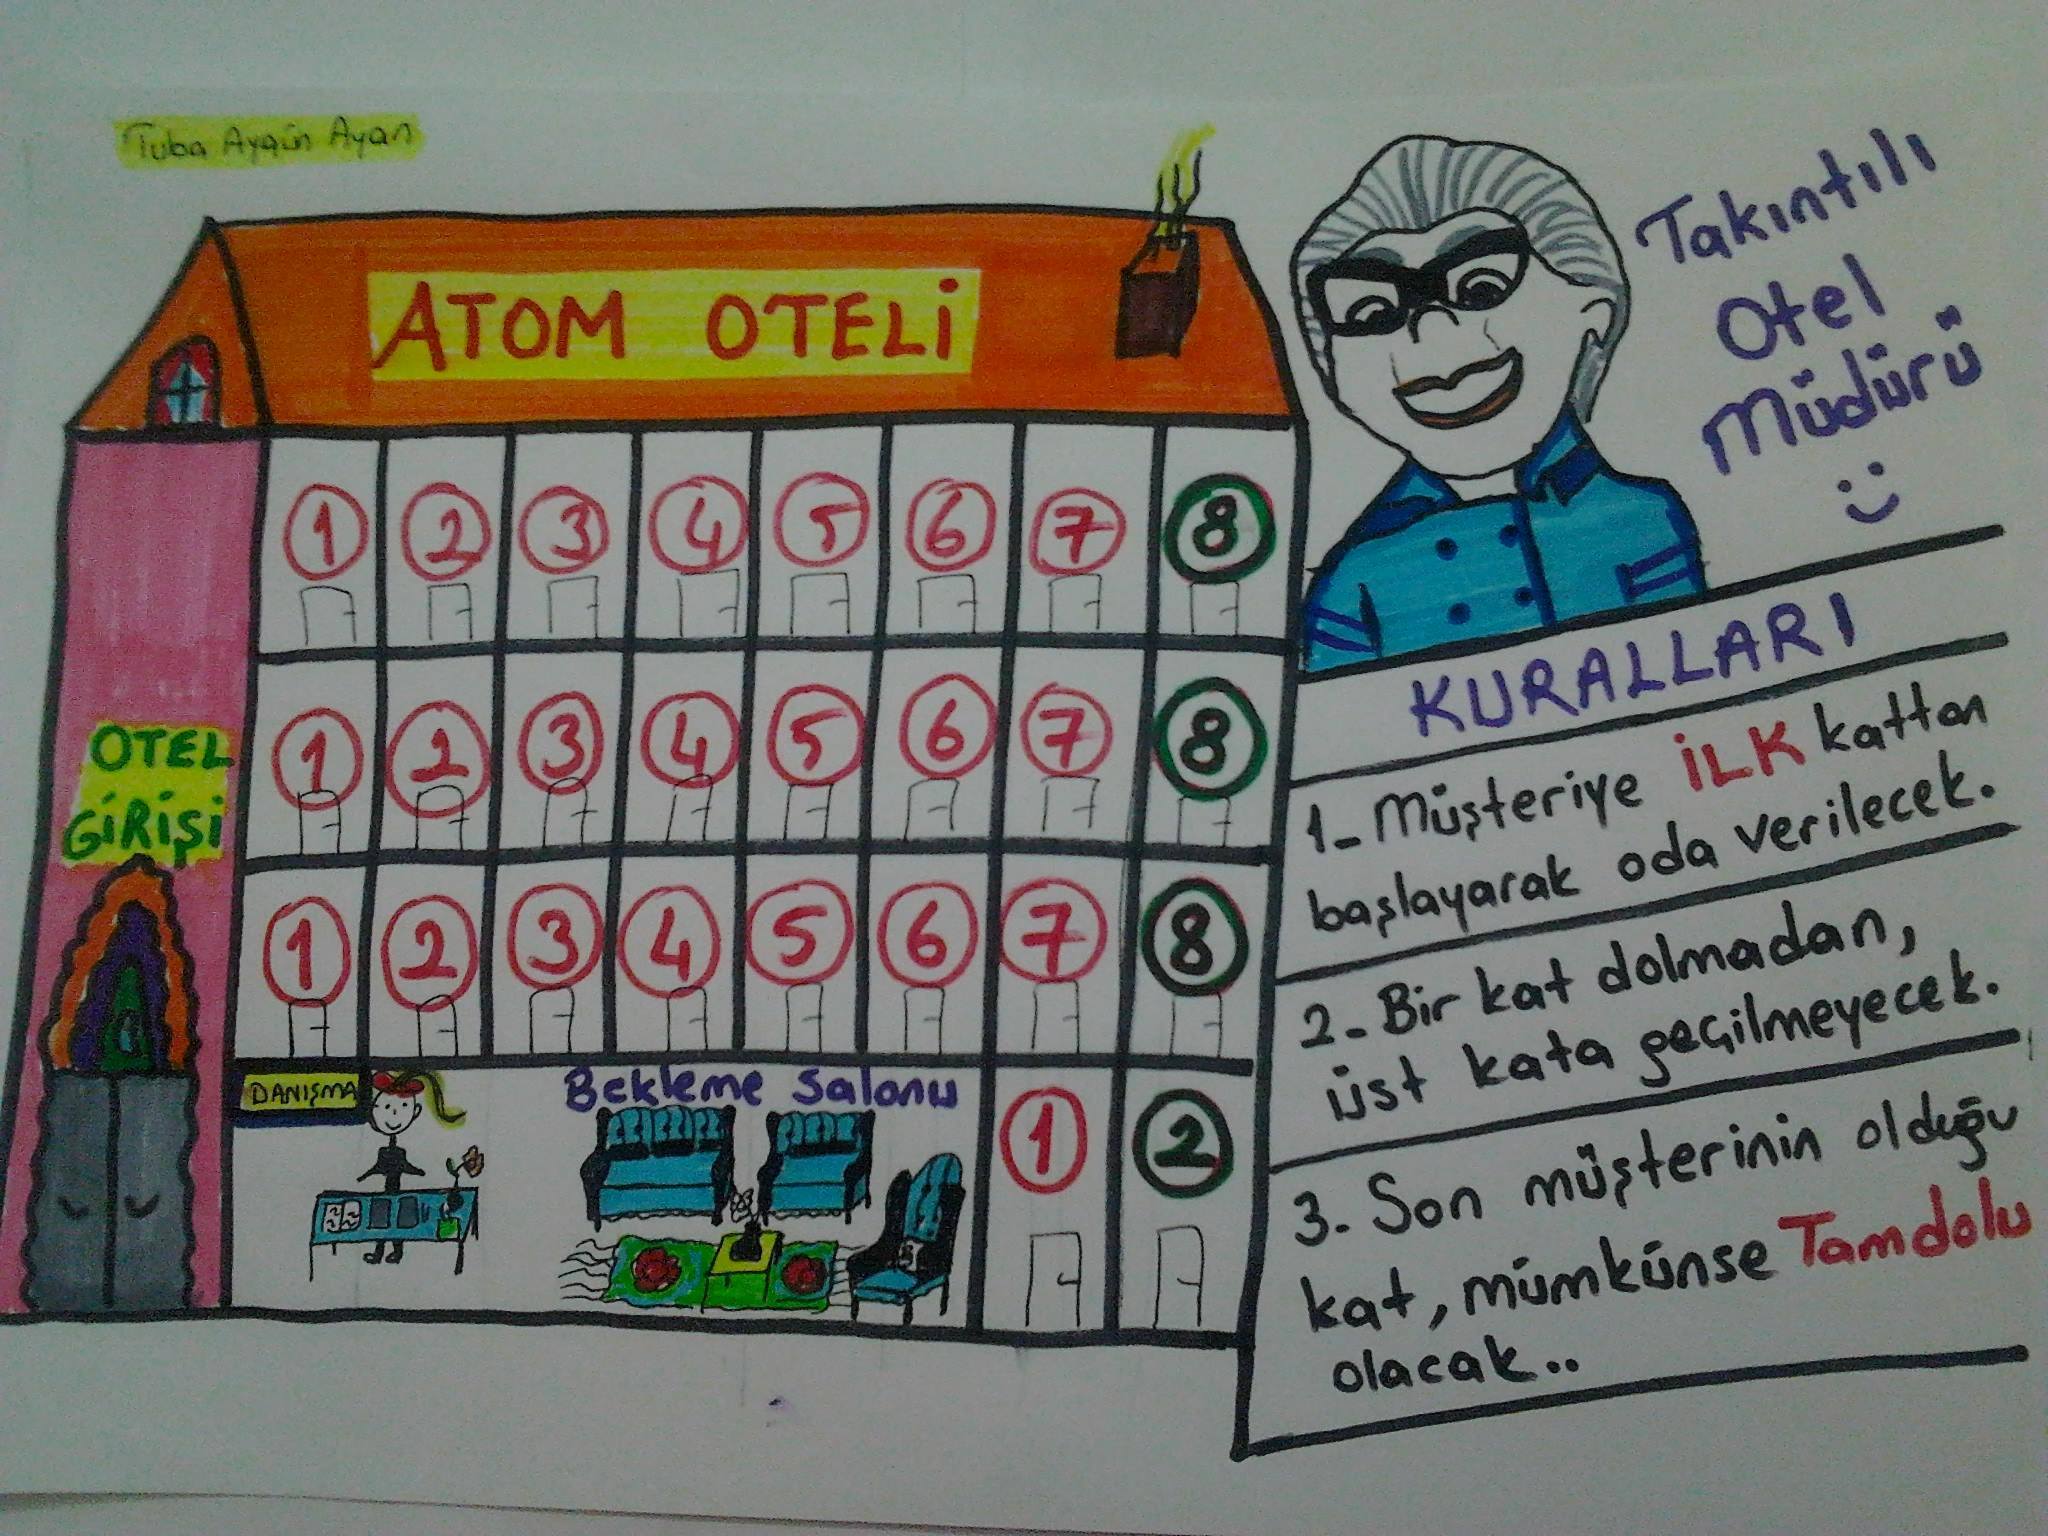 Tuba Aygün Ayan
ATOM OTELİ
Takıntılı
Otel
Müdürü
KURALLARI
1 2 3 4 5 6 7 8
OTEL
GİRİŞİ
1 2 3 4 5 6 7 8
1 2 3 4 5 6 7 8
DANIŞMA
Bekleme Salonu
1 2
1- Müşteriye İLK kattan
başlayarak oda verilecek.
2- Bir kat dolmadan,
üst kata geçilmeyecek.
3- Son müşterinin olduğu
kat, mümkünse Tamdolu
olacak..